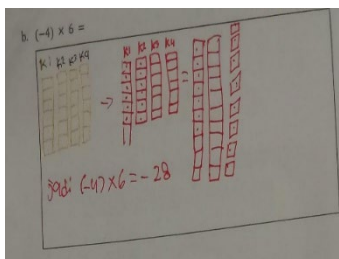 b. (-4) × 6 =
K1 K2 K3 K4
K1 K2 K3 K4
Jadi (-4) × 6 = - 28